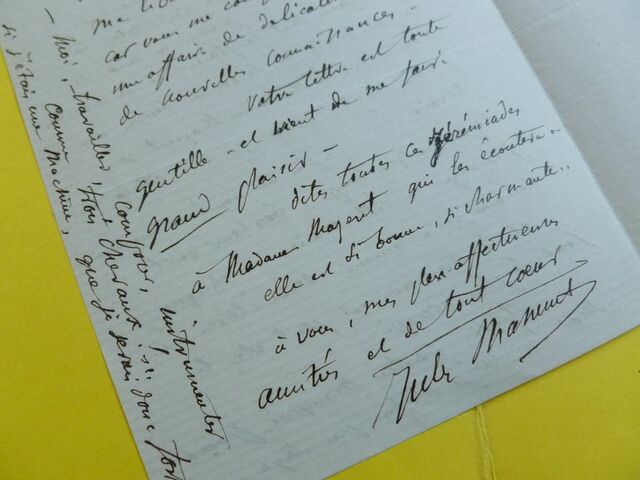 ma
car vous me
une affaire de délicate
de nouvelles connaissances -
votre lettre est toute
gentille - et vient de me faire
grand plaisir -
dites toutes ces jérémiades
à Madame qui les écoutera -
elle est si bonne, si charmante..
à vous, mes plus affectueuses
amitiés et de tout cœur
Jules Massenet
- Moi, travailler, composer, instrumenter
comme trois chevaux ici.
si j'étais une machine, que je serais donc